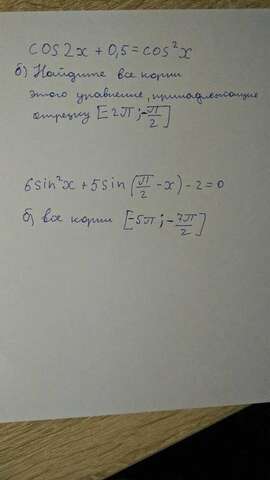 cos2x + 0,5 = cos²x
б) Найдите все корни
этого уравнения, принадлежащие
отрезку [-2π; -π/2]
6sin²x + 5sin(π/2 - x) - 2 = 0
б) все корни [-5π; -7π/2]